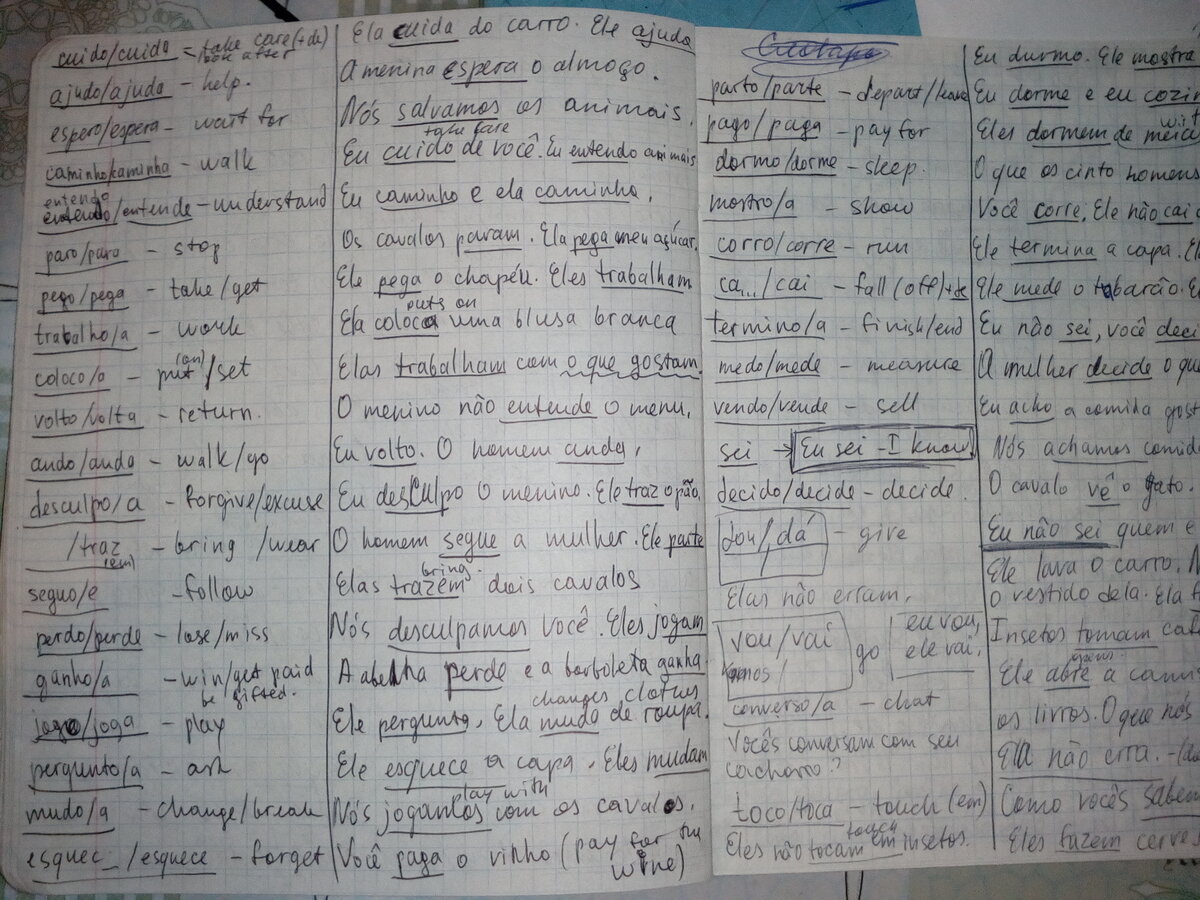 cuido/cuida = take care (+de)
look after
ajudo/ajuda - help.
espero/espera - wait for
caminho/caminha - walk
entendo
entendo/entende - understand
paro/para - stop
pego/pega - take/get
trabalho/a - work
(on)
coloco/a - put/set
volto/volta - return.
ando/anda - walk/go
desculpo/a - forgive/excuse
/traz - bring/wear
(em)
seguo/e - follow
perdo/perde - lose/miss
ganho/a - win/get paid
be gifted.
jogo/joga - play
pergunto/a - ask
mudo/a - change/break
esquec_/esquece - forget
Ela cuida do carro. Ele ajuda
A menina espera o almoço.
Nós salvamos os animais.
take care
Eu cuido de você. Eu entendo animais
Eu caminho e ela caminha.
Os cavalos param. Ela pega meu açúcar.
Ele pega o chapéu. Eles trabalham
puts on
Ela coloca uma blusa branca
Elas trabalham com o que gostam.
O menino não entende o menu.
Eu volto. O homem anda.
Eu desculpo o menino. Ele traz o pão
O homem segue a mulher. Ele parte
bring.
Elas trazem dois cavalos
Nós desculpamos você. Eles jogam
A abelha perde e a borboleta ganha.
changes clothes
Ele pergunta. Ela muda de roupa.
Ele esquece a capa. Eles mudam
play with
Nós jogamos com os cavalos.
Você paga o vinho (pay for the
wine)
parto/parte - depart/leave
pago/paga - pay for
dormo/dorme - sleep.
mostro/a - show
corro/corre - run
ca.../cai - fall (off)+de
termino/a - finish/end
medo/mede - measure
vendo/vende - sell
sei → Eu sei - I know
decido/decide - decide.
dou/dá - give
Elas não erram.
vou/vai go eu vou,
ele vai,
converso/a - chat
Vocês conversam com seu
cachorro?
toco/toca - touch (em)
touch
Eles não tocam em insetos.
Eu durmo. Ele mostra
Eu dorme e eu cozin
Eles dormem de
O que os cinto homens
Você corre. Ele não cai
Ele termina a capa. El
Ele mede o tubarão. E
Eu não sei, você deci
A mulher decide o que
Eu acho a comida gost
Nós achamos comida
O cavalo vê o gato.
Eu não sei quem e
Ele lava o carro.
O vestido dela. Ela t
Insetos tomam
opens
Ele abre a
os livros. O que nós
Ela não erra.
Como vocês sabem
Eles fazem cerve